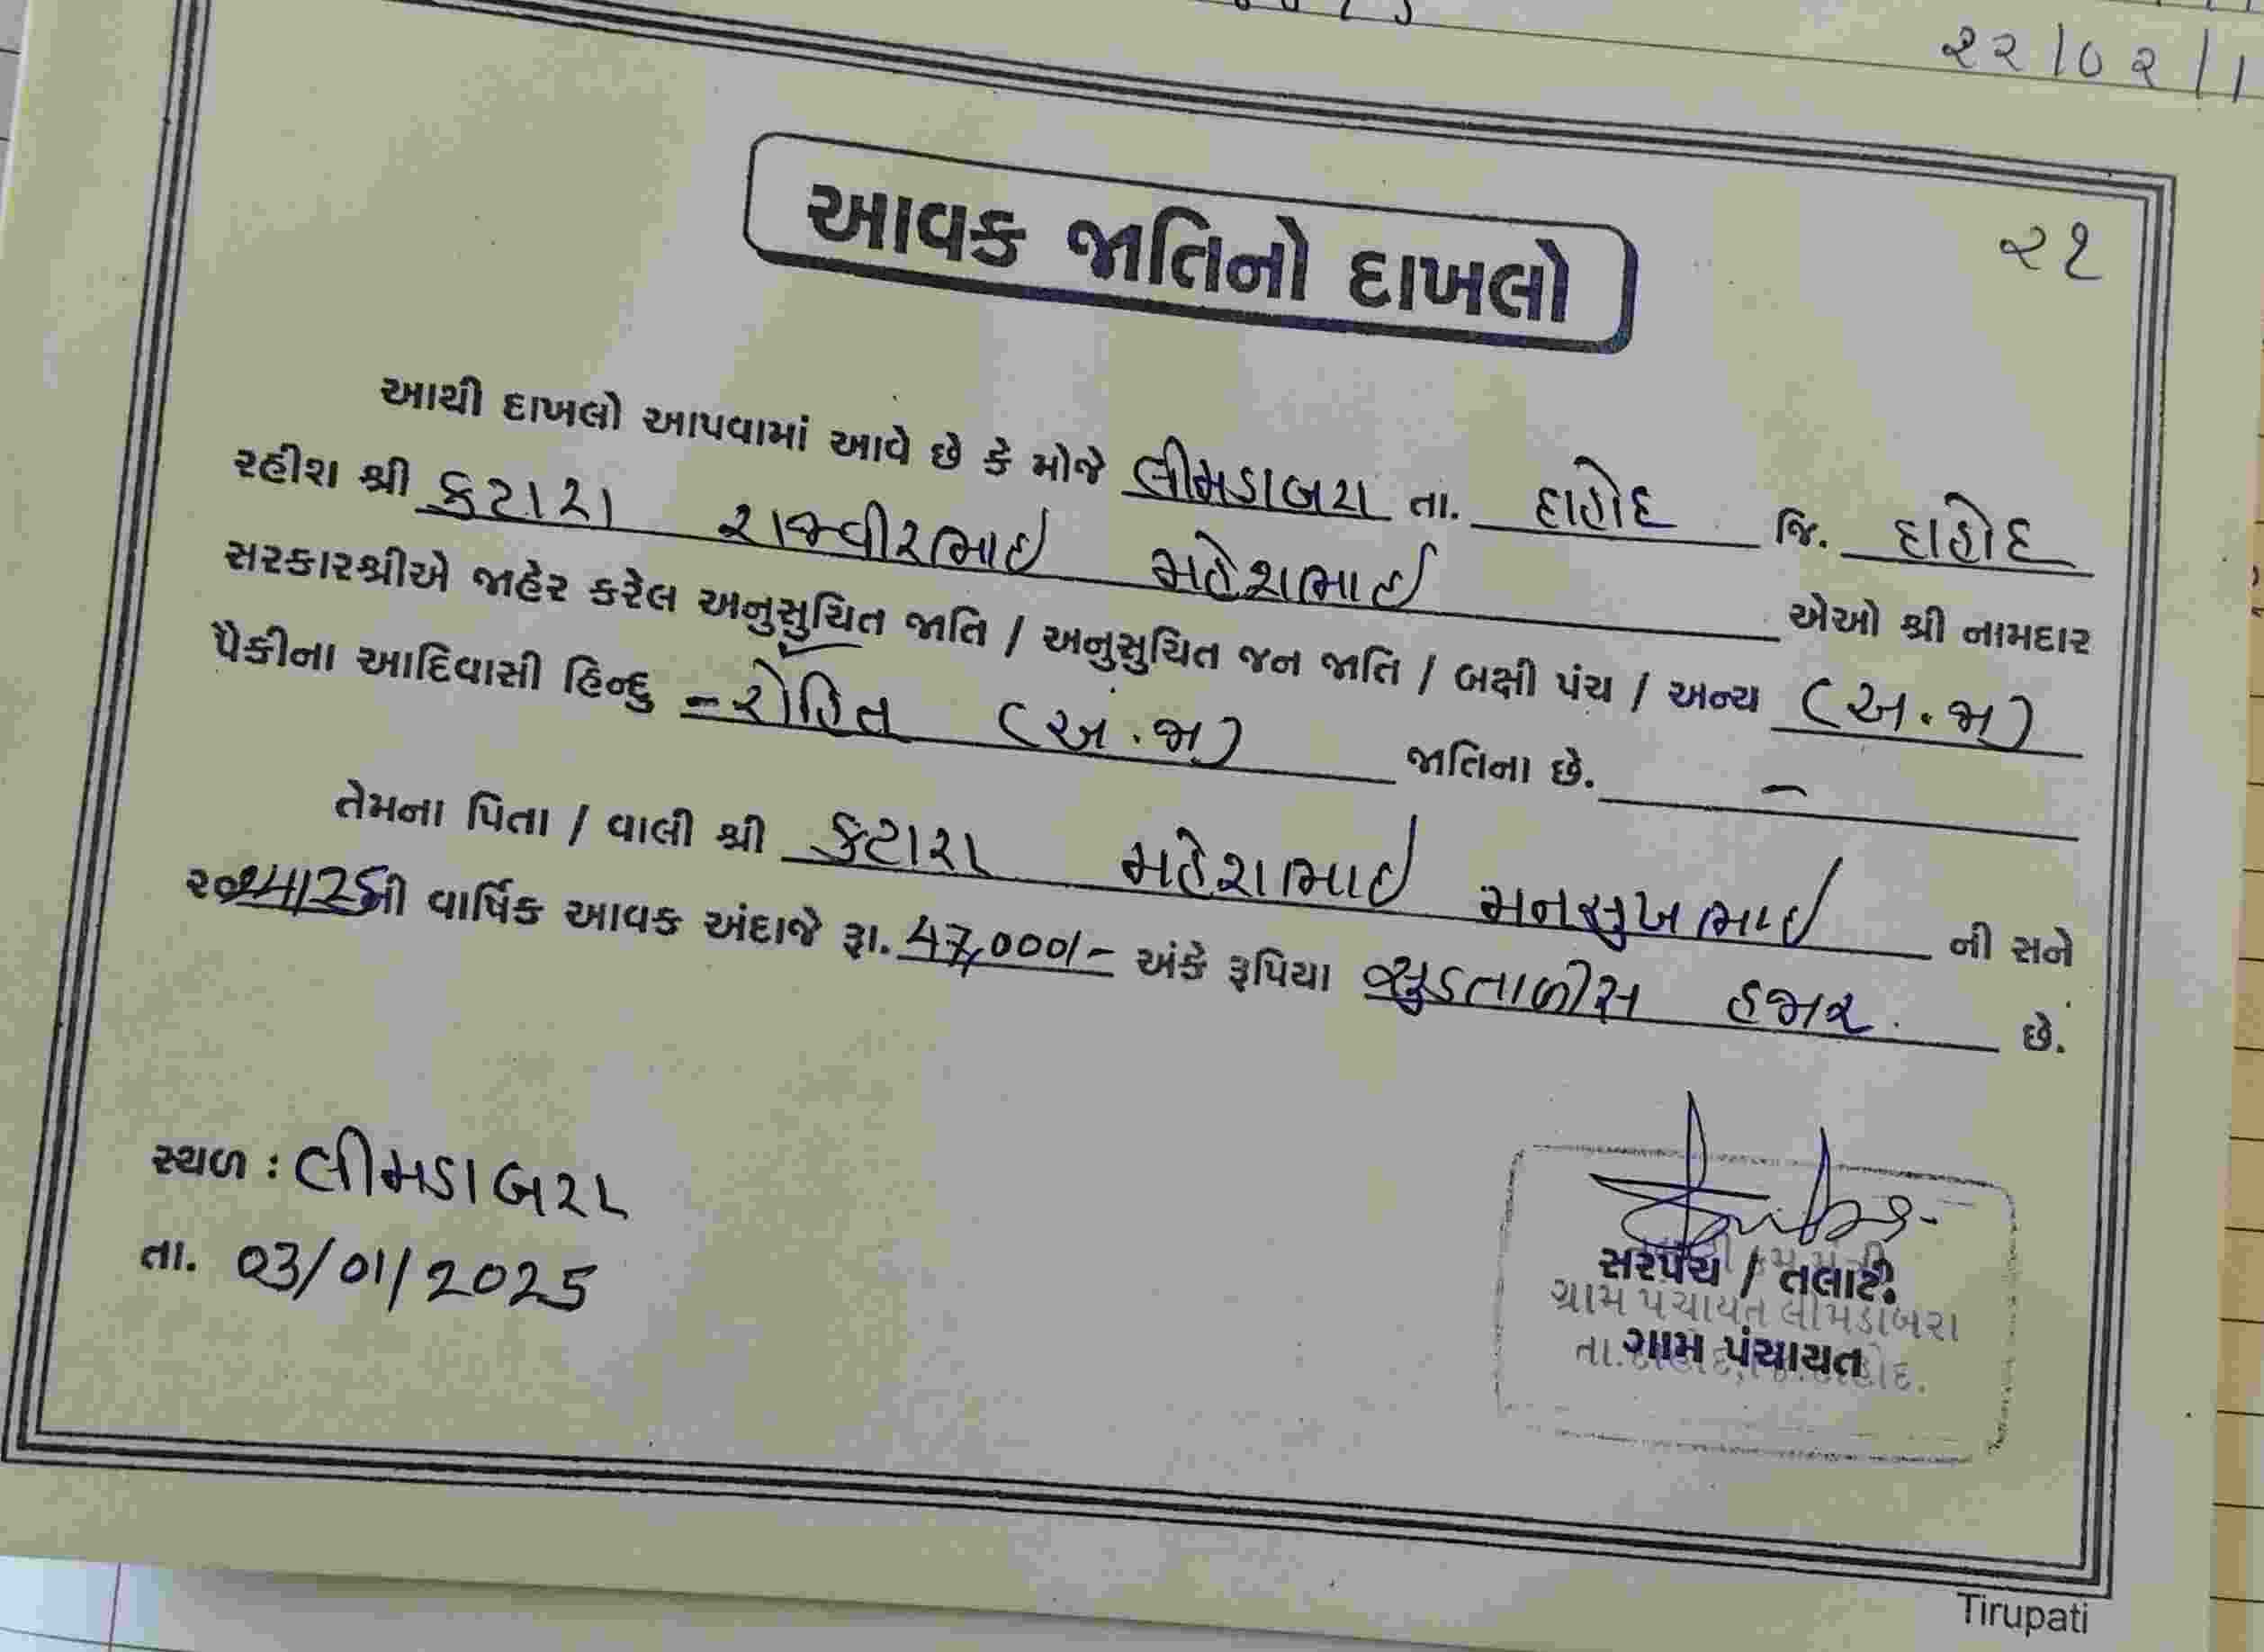 ૨૨/૦૨/૧
૨૧
આવક જાતિનો દાખલો
આથી દાખલો આપવામાં આવે છે કે મોજે લીમડાબરા તા. દાહોદ જિ. દાહોદ
રહીશ શ્રી કટારા રાજવીરભાઇ મહેશભાઇ એઓ શ્રી નામદાર
સરકારશ્રીએ જાહેર કરેલ અનુસુચિત જાતિ / અનુસુચિત જન જાતિ / બક્ષી પંચ / અન્ય (અ.જા)
પૈકીના આદિવાસી હિન્દુ - રોહિત (અ.જા) જાતિના છે. -
તેમના પિતા / વાલી શ્રી કટારા મહેશભાઇ મનસુખભાઇ ની સને
ની વાર્ષિક આવક અંદાજે રૂા. 47,000/- અંકે રૂપિયા સુડતાળીસ હજાર. છે.
સ્થળ : લીમડાબરા
તા. 03/01/2025
સરપંચ / તલાટી
ગ્રામ પંચાયત લીમડાબરા
ગ્રામ પંચાયત
Tirupati